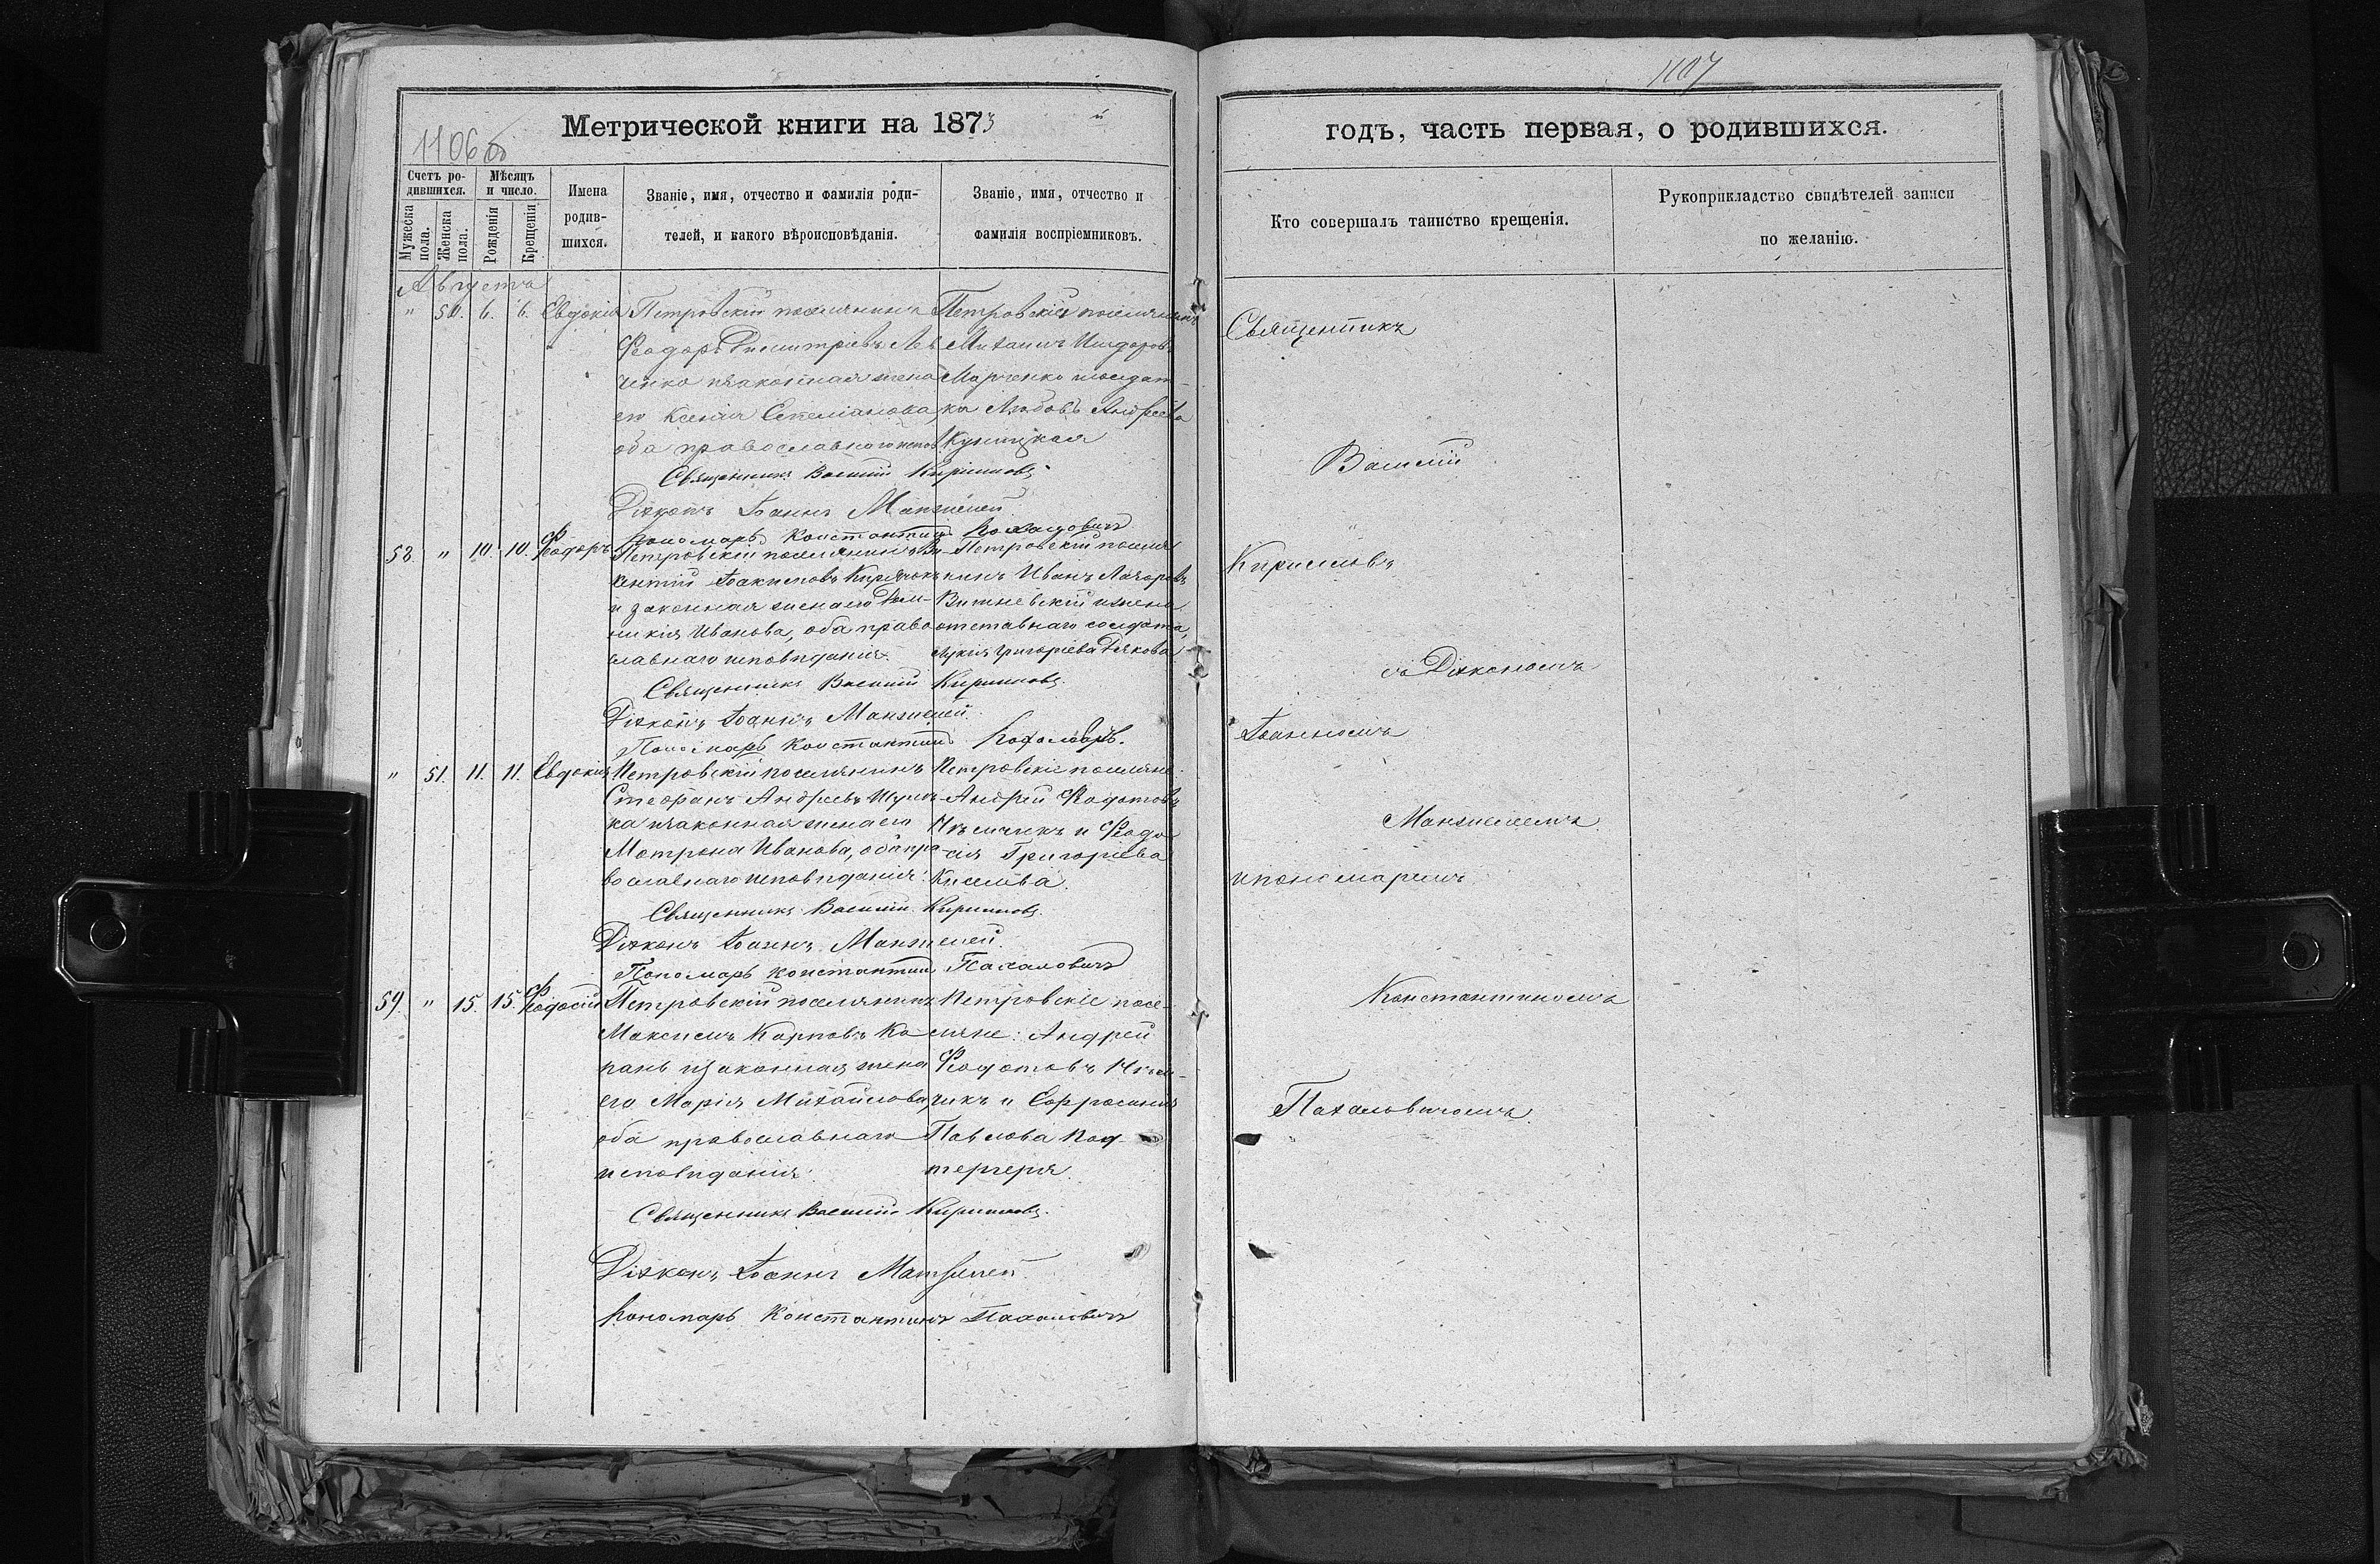 1106 об
Метрической книги на 1873 й
Счетъ родившихся.
Мѣсяцъ и число.
Мужеска пола.
Женска пола.
Рожденія
Крещенія
Имена родившихся.
Званіе, имя, отчество и фамилія родителей, и какого вѣроисповѣданія.
Званіе, имя, отчество и фамилія воспріемниковъ.
Августа
" 50. 6. 6. Евдокія
Петровскій поселянинъ
Ѳеодоръ Димитріевъ Лев
ченко и законная жена
его Ксенія Емеліанова,
оба православнаго испов.
Петровскіе поселянинъ
Михаилъ Исидоровъ
Марченко и солдат-
ка Любовь Андреева
Куницкая
Священникъ Василій Кирилловъ
Діаконъ Іоаннъ Манжелей
Пономарь Константинъ Пахаловичъ
58. " 10. 10. Ѳеодоръ
Петровскій поселянинъ Ви-
кентій Іоакимовъ
и законная жена его Дом-
никія Иванова, оба право
славнаго исповѣданія.
Петровскій поселя
нинъ Иванъ Лазоревъ
Вишневскій и жена
отставнаго солдата,
Лукія Григоріева Дьякова
Священникъ Василій Кирилловъ
Діаконъ Іоаннъ Манжелей
Пономарь Константинъ
" 51. 11. 11. Евдокія
Петровскій поселянинъ
Стефанъ Андреевъ
ка и законная жена его
Матрона Иванова, оба пра
вославнаго исповѣданія.
Петровскіе поселяне
Андрей Ѳедотовъ
Нѣмчикъ и Ѳеодо
сія Григоріева
Киселева.
Священникъ Василій Кирилловъ
Діаконъ Іоаннъ Манжелей.
Пономарь Константинъ Пахаловичъ
59. " 15. 15. Ѳеодосій
Петровскій поселянинъ
Максимъ Карповъ Ка
пань и законная жена
его Марія Михайлова,
оба православнаго
исповѣданія.
Петровскіе посе-
ляне: Андрей
Ѳедотовъ Нѣм-
чикъ и Евфросинія
Павлова Код-
Священникъ Василій Кирилловъ
Діаконъ Іоаннъ Манжелей
Пономарь Константинъ Пахаловичъ
1107
годъ, часть первая, о родившихся.
Кто совершалъ таинство крещенія.
Рукоприкладство свидѣтелей записи по желанію.
Священникъ
Василій
Кирилловъ
съ Діакономъ
Іоанномъ
Манжелеемъ
и пономаремъ
Константиномъ
Пахаловичемъ